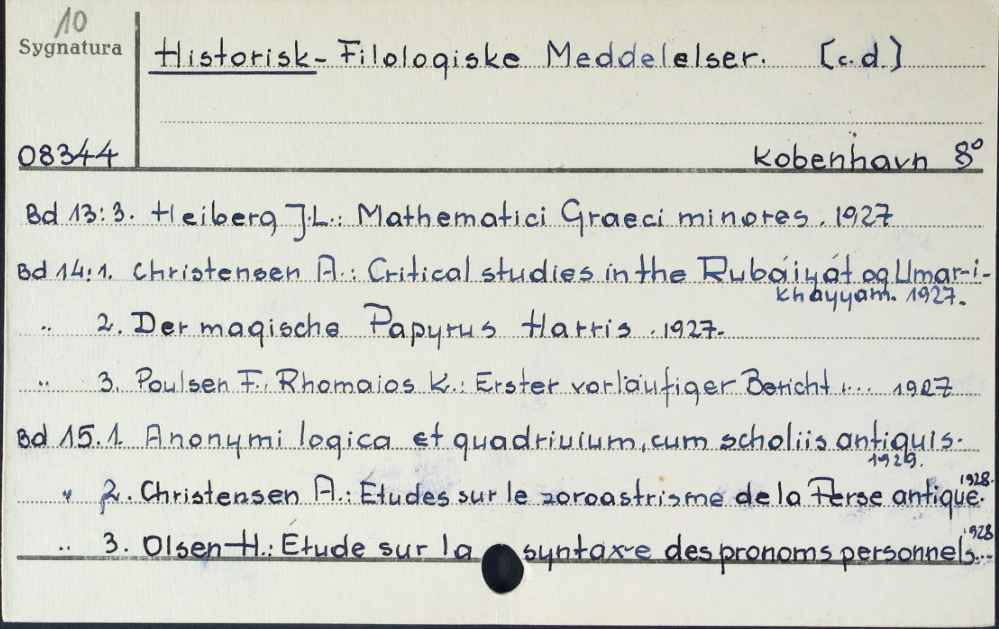 10
Sygnatura
Historisk-Filologiske Meddelelser. [c.d.]
08344
Kobenhavn 8°
Bd 13:3. Heiberg J.L.: Mathematici Graeci minores. 1927
Bd 14:1. Christensen A.: Critical studies in the Rubáiyát og Umar-i-
Khayyam. 1927.
.. 2. Der magische Papyrus Harris. 1927.
.. 3. Poulsen F., Rhomaios K.: Erster vorläufiger Bericht .... 1927
Bd 15.1. Anonymi logica et quadriuium, cum scholiis antiquis.
1929.
" 2. Christensen A.: Etudes sur le zoroastrisme de la Perse antique. 1928.
.. 3. Olsen H.: Étude sur la syntaxe des pronoms personnels... 1928